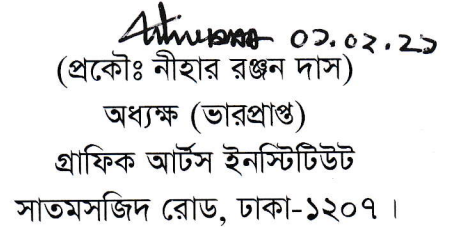 ০১.০২.২১
(প্রকৌঃ নীহার রঞ্জন দাস)
অধ্যক্ষ (ভারপ্রাপ্ত)
গ্রাফিক আর্টস ইনস্টিটিউট
সাতমসজিদ রোড, ঢাকা-১২০৭।